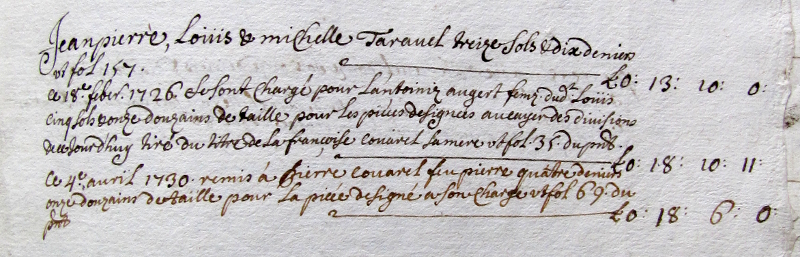 Jeanpierre, Louis & michelle Taravel treize sols & dix deniers
vt fol 157. £0: 13: 10: 0:
Ce 18e. feber. 1726. Se sont Chargé pour L'antoiniz augert femz. dudt. Louis
cinq sols & onze douzains de taille pour les pièces designees au cayer des divisions
de ce Jourd'huy tirés du titre de la françoise couarel sa mere vt fol 35. du pnt.
£0: 18: 10: 11:
Ce 4e. avril 1730. remis à pierre couarel feu pierre quatre deniers
onze douzains de taille pour la pièce designé a son Charge vt fol 69. du
pnt £0: 18: 6: 0: